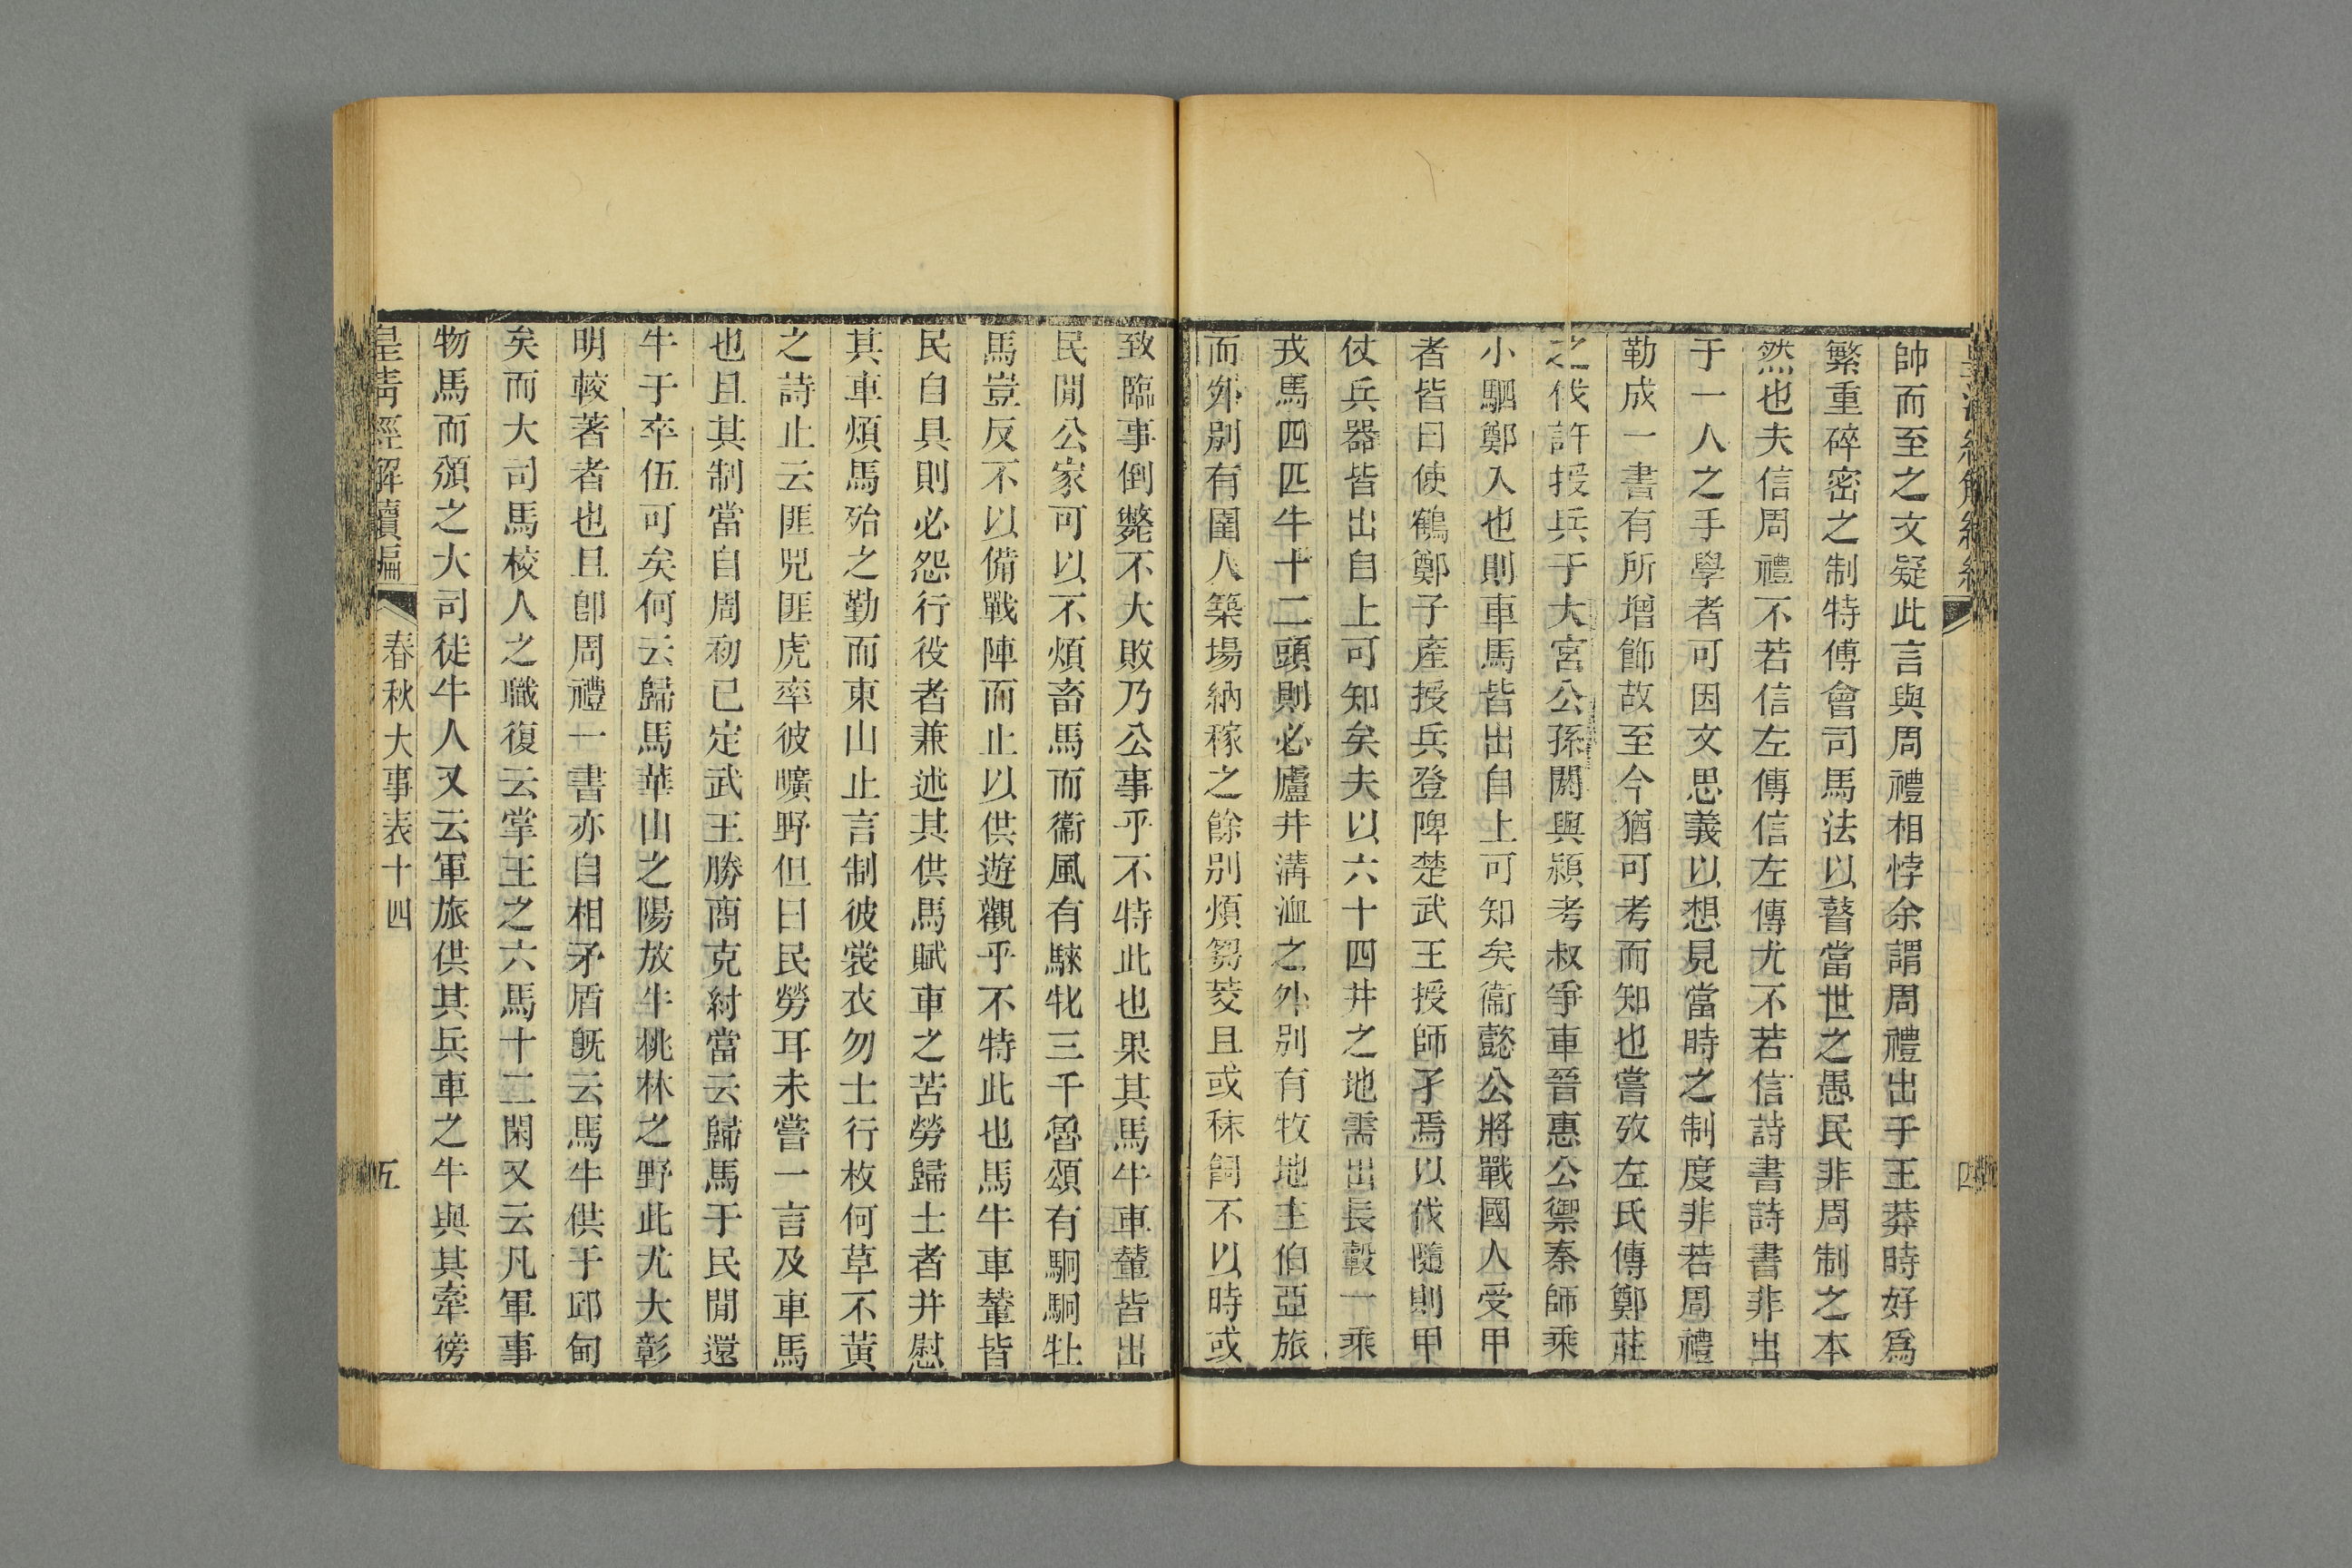 帥而至之文疑此言與周禮相悖余謂周禮出于王莽時好爲
繁重碎密之制特傅會司馬法以瞽當世之愚民非周制之本
然也夫信周禮不若信左傳信左傳尤不若信詩書詩書非出
于一人之手學者可因文思義以想見當時之制度非若周禮
勒成一書有所增飾故至今猶可考而知也嘗攷左氏傳鄭莊
之伐許授兵于大宮公孫閼與潁考叔爭車晉惠公禦秦師乘
小駟鄭入也則車馬皆出自上可知矣衞懿公將戰國人受甲
者皆曰使鶴鄭子產授兵登陴楚武王授師孑焉以伐隨則甲
仗兵器皆出自上可知矣夫以六十四井之地需出長轂一乘
戎馬四匹牛十二頭則必廬井溝洫之外別有牧地主伯亞旅
而外別有圉人築場納稼之餘別煩芻茭且或秣飼不以時或
致臨事倒斃不大敗乃公事乎不特此也果其馬牛車輦皆出
民閒公家可以不煩畜馬而衞風有騋牝三千魯頌有駉駉牡
馬豈反不以備戰陣而止以供遊觀乎不特此也馬牛車輦皆
民自具則必怨行役者兼述其供馬賦車之苦勞歸士者并慰
其車煩馬殆之勤而東山止言制彼裳衣勿士行枚何草不黃
之詩止云匪兕匪虎率彼曠野但曰民勞耳未嘗一言及車馬
也且其制當自周初已定武王勝商克紂當云歸馬于民閒還
牛于卒伍可矣何云歸馬華山之陽放牛桃林之野此尤大彰
明較著者也且卽周禮一書亦自相矛盾旣云馬牛供于邱甸
矣而大司馬校人之職復云掌王之六馬十二閑又云凡軍事
物馬而頒之大司徒牛人又云軍旅供其兵車之牛與其牽徬
皇清經解續編 春秋大事表十四 五